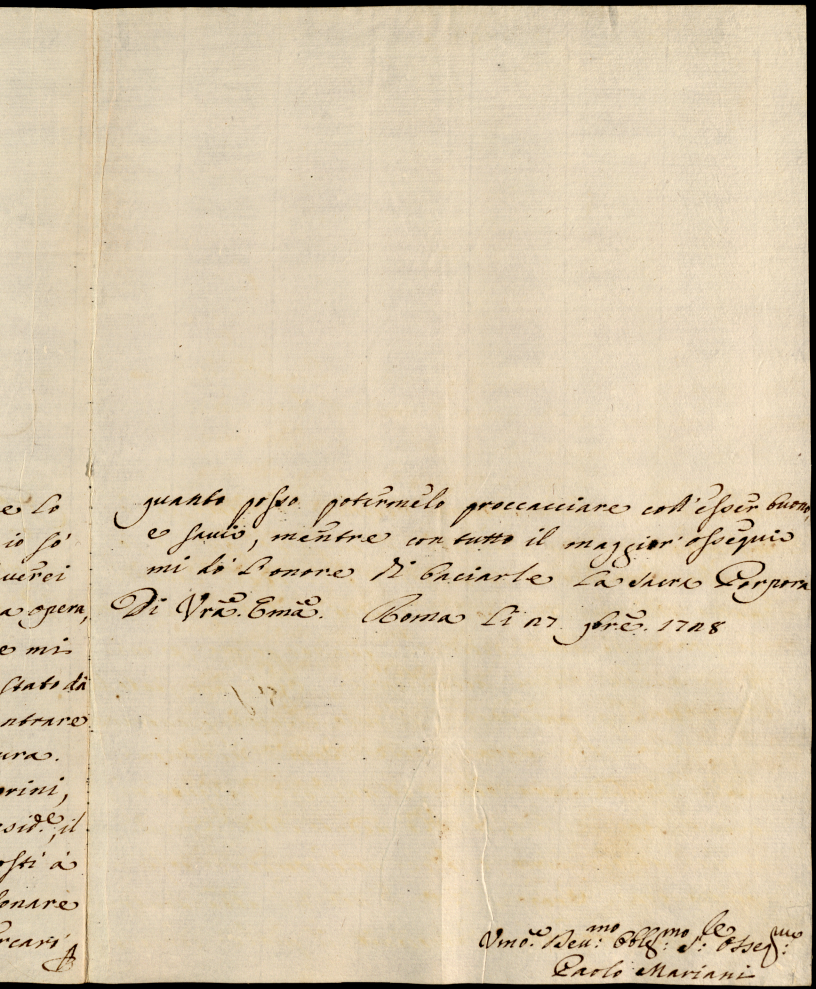 e Lo
io sò
verei
a opera,
e mi
stato da
ntrare
ura.
orini,
esid.e, il
osti à
onare
rcari
quanto posso potermelo proccacciare coll'esser buono,
e savio, mentre con tutto il maggior' ossequio
mi dò L'onore di baciarle La Sacra Porpora
Di Vra. Ema. Roma Li 27 9bre. 1728
Vmo. Dev.mo Obblg.mo S.re Osseq.mo
Paolo Mariani